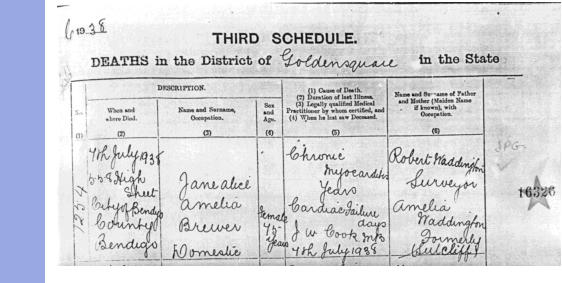 1938
THIRD SCHEDULE.
DEATHS in the District of Goldensquare in the State
DESCRIPTION.
When and where Died.
Name and Surname, Occupation.
Sex and Age.
(1) Cause of Death.
(2) Duration of last Illness.
(3) Legally qualified Medical Practitioner by whom certified, and
(4) When he last saw Deceased.
Name and Surname of Father and Mother (Maiden Name if known), with Occupation.
(1) (2) (3) (4) (5) (6)
1254
7th July 1938
558 High Street
City of Bendigo
County Bendigo
Jane alice
amelia
Brewer
Domestic
Female
75
Years
Chronic
Myocarditis
Years
Cardiac Failure
days
J W Cook MB
7th July 1938
Robert Waddington
Surveyor
Amelia
Waddington
Formerly
Sutcliff
16326